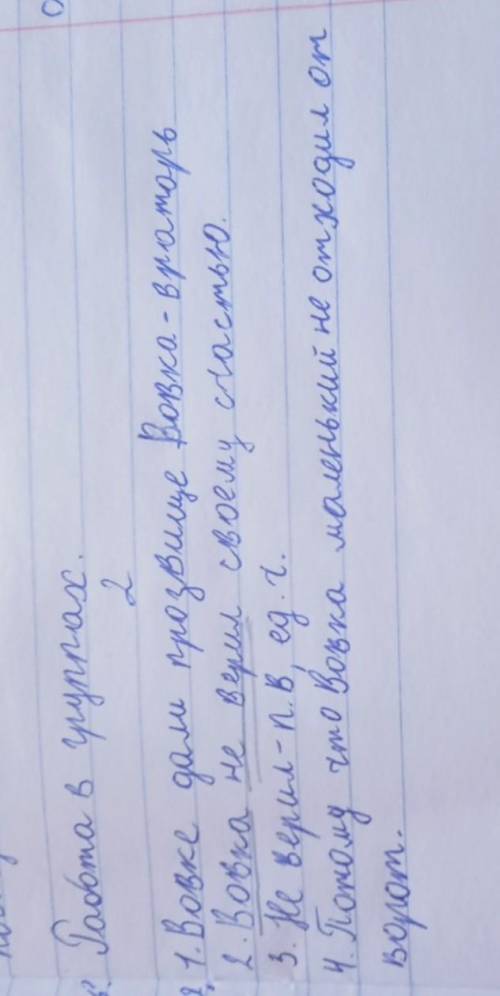 Работа в группах.
2
1. Вовке дали прозвище Вовка-вратарь
2. Вовка не верил своему счастью.
3. Не верил-п.в, ед.ч.
4. Потому что Вовка маленький не отходил от
ворот.